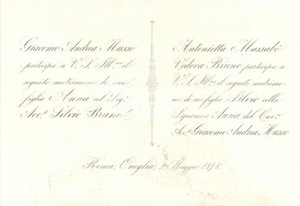 Giacomo Andrea Musso
partecipa a V. S. Ill.ma il
seguito matrimonio di sua
figlia Anna col Sig.
Avv.o Silvio Bruno
Antonietta Massabò
Vedova Bruno partecipa a
V. S. Ill.ma il seguito matrimo-
nio di suo figlio Silvio colla
Signorina Anna del Cav.
Av. Giacomo Andrea Musso
Roma, Oneglia, Maggio 1878